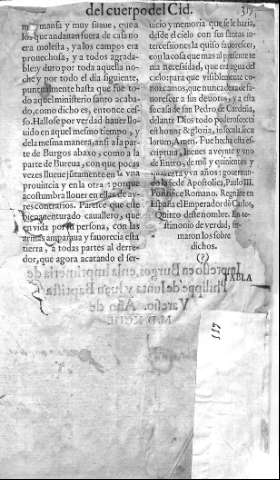 del cuerpo del Cid.
mansa y muy suaue, que a
los que andauan fuera de casa no
era molesta, y a los campos era
prouechosa, y a todos agrada-
ble y duro por toda aquella no-
che y por todo el dia siguiente,
puntualmente hasta que fue to-
do aquel misterio santo acaba-
do, como dicho es, entonce ces-
so. Hallose por verdad hauer llo-
uido en aquel mesmo tiempo, y
dela mesma manera, ansi a la par
te de Burgos abaxo, como a la
parte de fuera, con que pocas
vezes llueue juntamente en la vna
prouincia y en la otra: porque
acostumbra llouer en ellas de ay-
res contrarios. Paresce que este
bienauenturado cauallero, que
en vida por su persona, con las
armas amparaua y fauorecia esta
tierra, a todas partes al derre-
dor, que agora acatando el ser-
uicio y memoria que se le hazia,
desde el cielo con sus santas in-
tercessiones la quiso fauorescer,
con la cosa que mas al presente te-
nia necessidad, que era agua del
cielo: para que visiblemente co-
nozcamos, que nunca dexa de fa-
uorescer a sus deuotos, y a esta
su casa de san Pedro de Cardeña,
delante Dios todo poderoso cu-
ius honor & gloria, in secula secu
lorum, Amen. Fue hecha esta es-
criptura, lueues a veynte y vno
de Enero, de mil y quinientos y
quarenta y vn años: gouernan-
do la sede Apostolica, Paulo III.
Pontifice Romano. Reynando en
España el Emperador dõ Carlos,
Quinto deste nombre. En te-
stimonio de verdad, fir-
maron los sobre
dichos.
(?)
TABLA
Impresso en Burgos, en la Imprimeria de
Philippe de Iunta y Iuan Baptista
Varesio. Año de
317